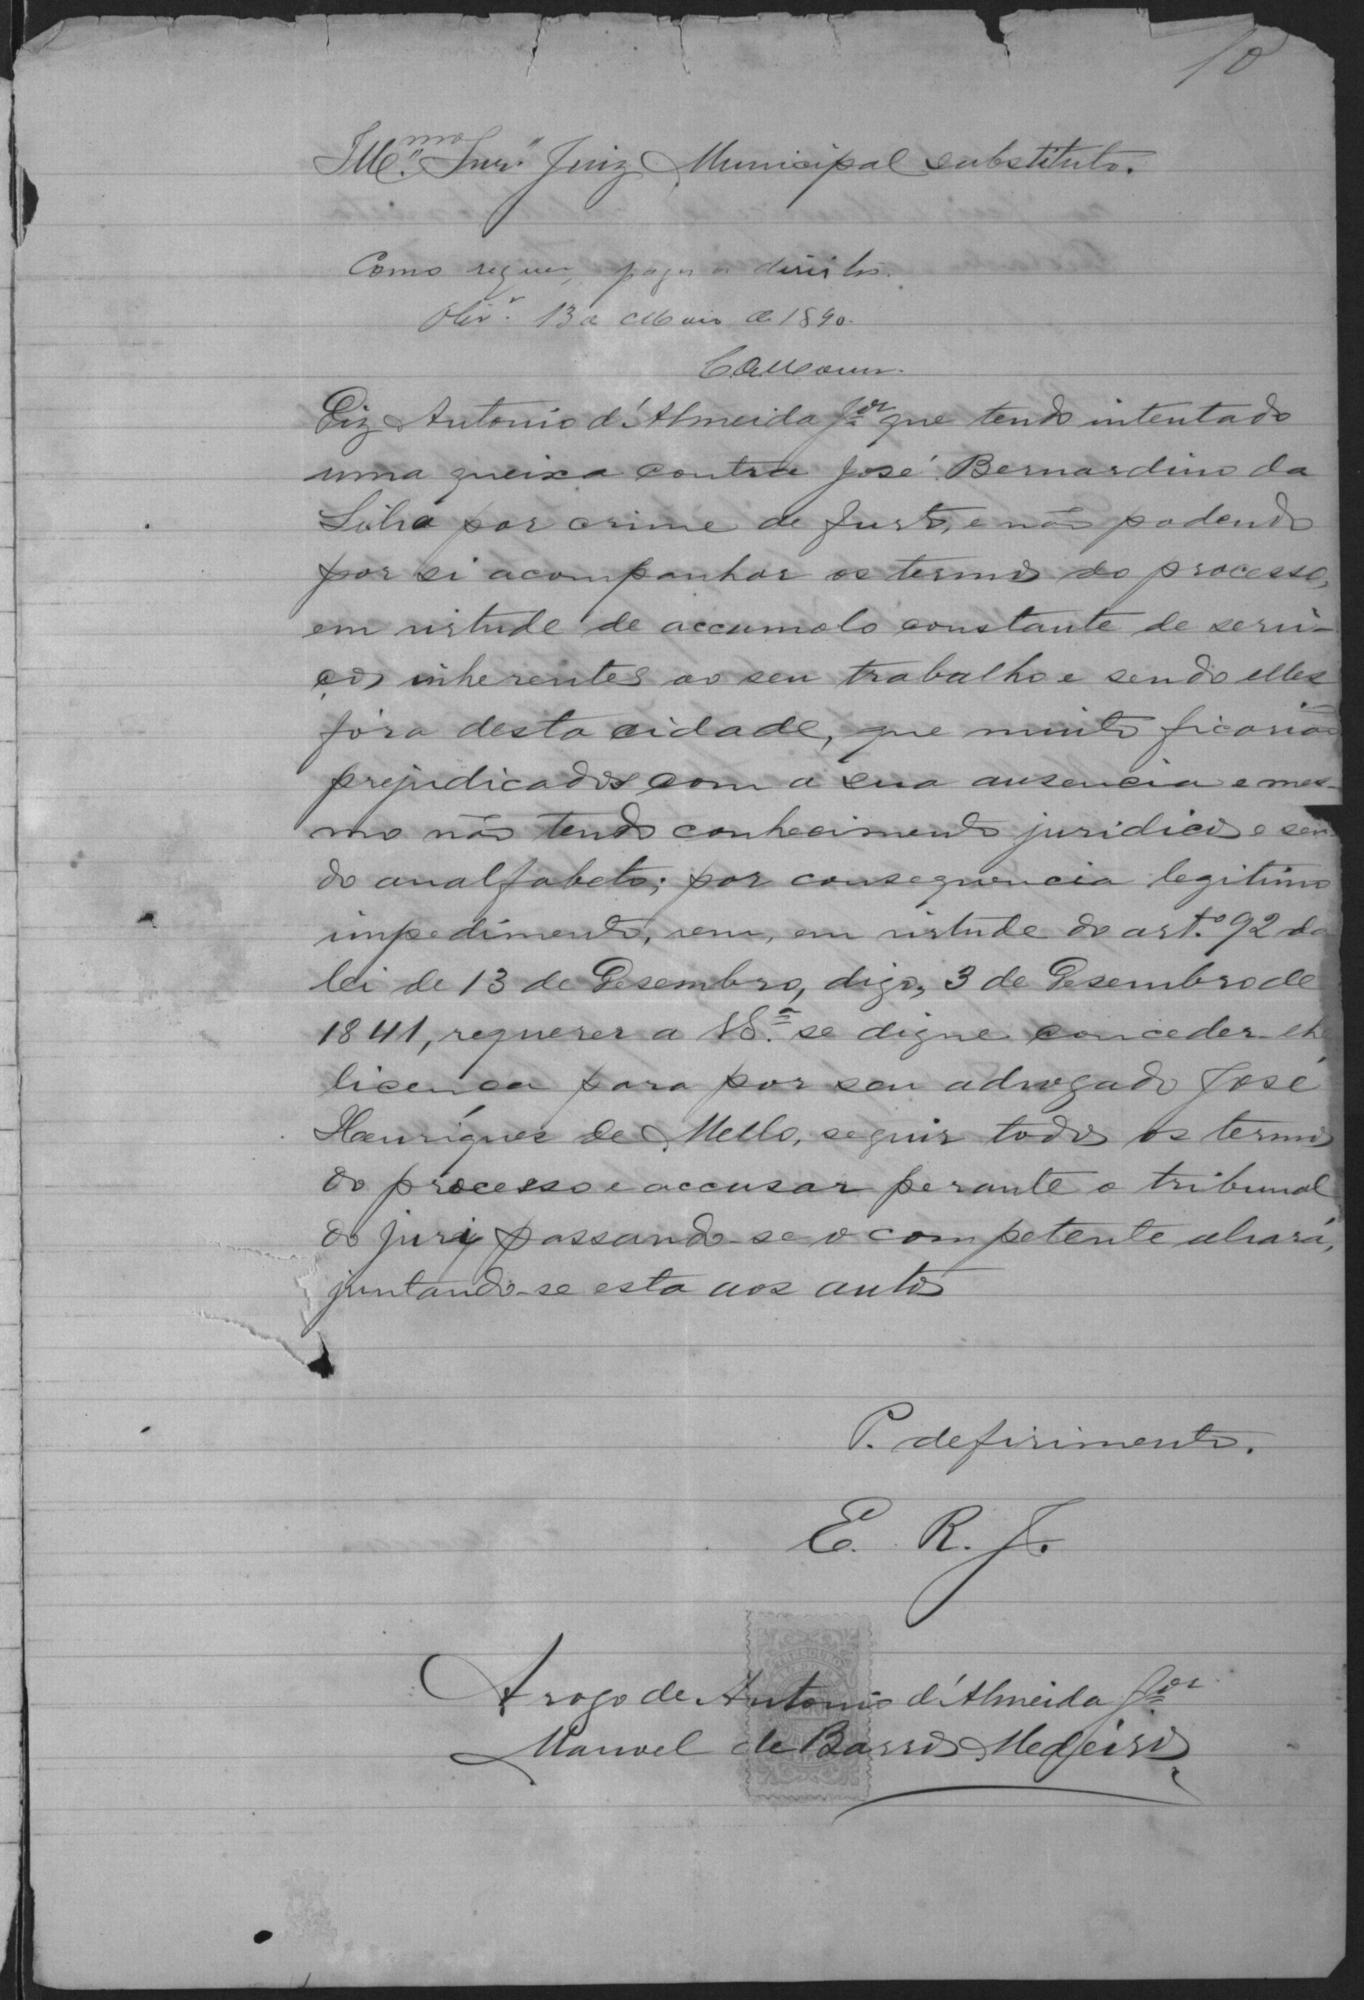 10
Illmo. Snr. Juiz Municipal substituto.
Como requer, pagos os direitos.
13 de Maio de 1890.
Diz Antonio d'Almeida Jor. que tendo intentado
uma queixa contra José Bernardino da
Silva por crime de furto, e não podendo
por si acompanhar os termos do processo,
em virtude de accumolo constante de servi-
ços inherentes ao seu trabalho e sendo elles
fóra desta cidade, que muito ficarião
prejudicados com a sua ausencia e mes-
mo não tendo conhecimento juridico e sen-
do analfabeto; por consequencia legitimo
impedimento, vem, em virtude do art.º 92 da
lei de 13 de Desembro, digo, 3 de Desembro de
1841, requerer a V.S.ª se digne conceder-lhe
licença para por seu advogado José
Henriques de Mello, seguir todos os termos
do processo e accusar perante o tribunal
do jury passando-se o competente alvará,
juntando-se esta aos autos
P. defirimento.
E. R. J.
A rogo de Antonio d'Almeida Jor.
Manoel de Barros Medeiros